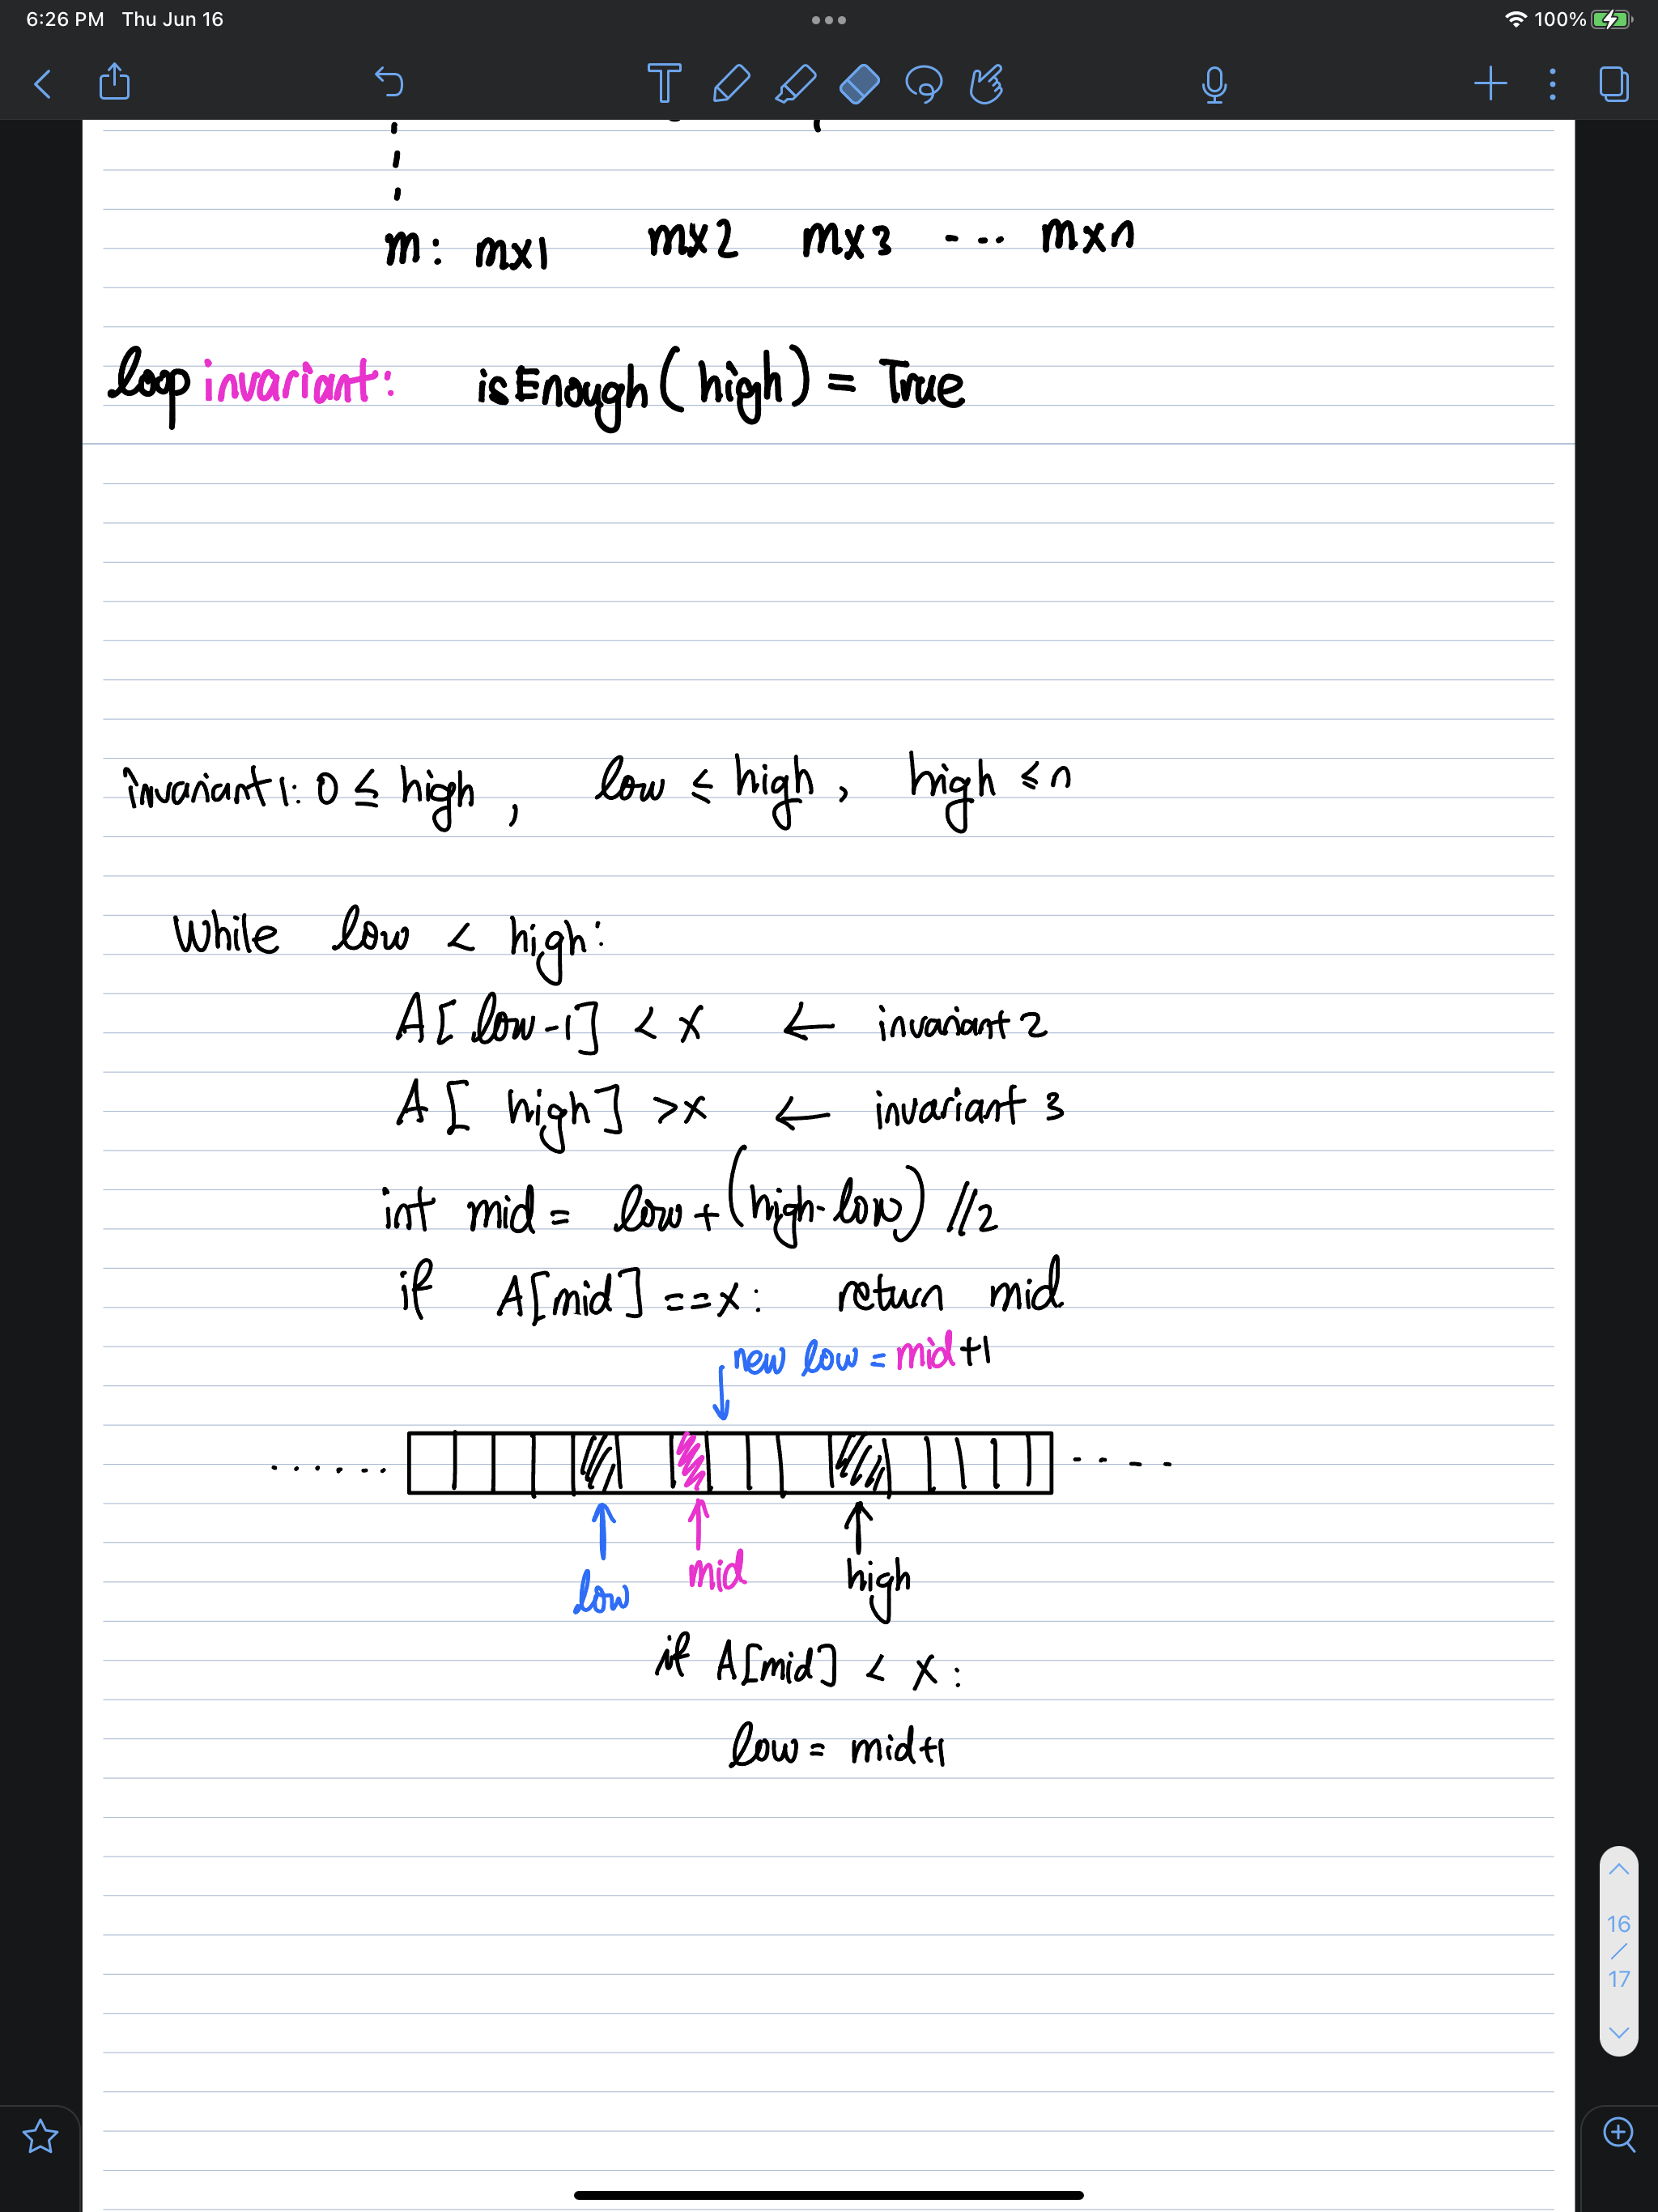 6:26 PM Thu Jun 16
100%
m: mx1 mx2 mx3 --- mxn
loop invariant: isEnough(high) = True
invariant1: 0 ≤ high, low ≤ high, high ≤ n
While low < high:
A[low-1] < x ← invariant 2
A[high] > x ← invariant 3
int mid = low + (high-low) //2
if A[mid] == x: return mid
new low = mid+1
low
mid
high
if A[mid] < x:
low = mid+1
16
/
17